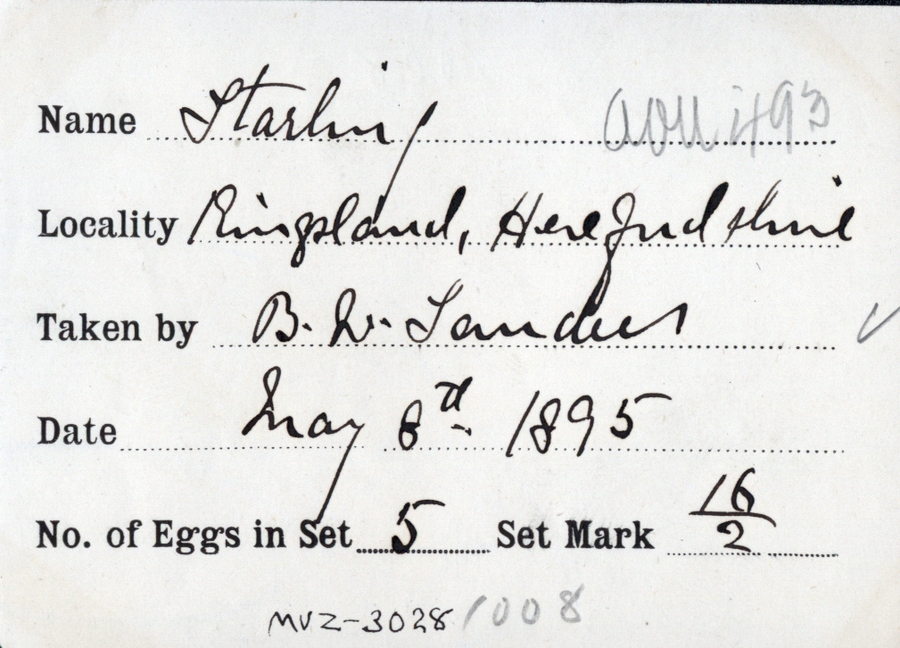 Name Starling AOU 493
Locality Kingsland, Herefordshire
Taken by B. W. Sanders
Date May 8th 1895
No. of Eggs in Set 5 Set Mark 16/2
MVZ-3028 1008